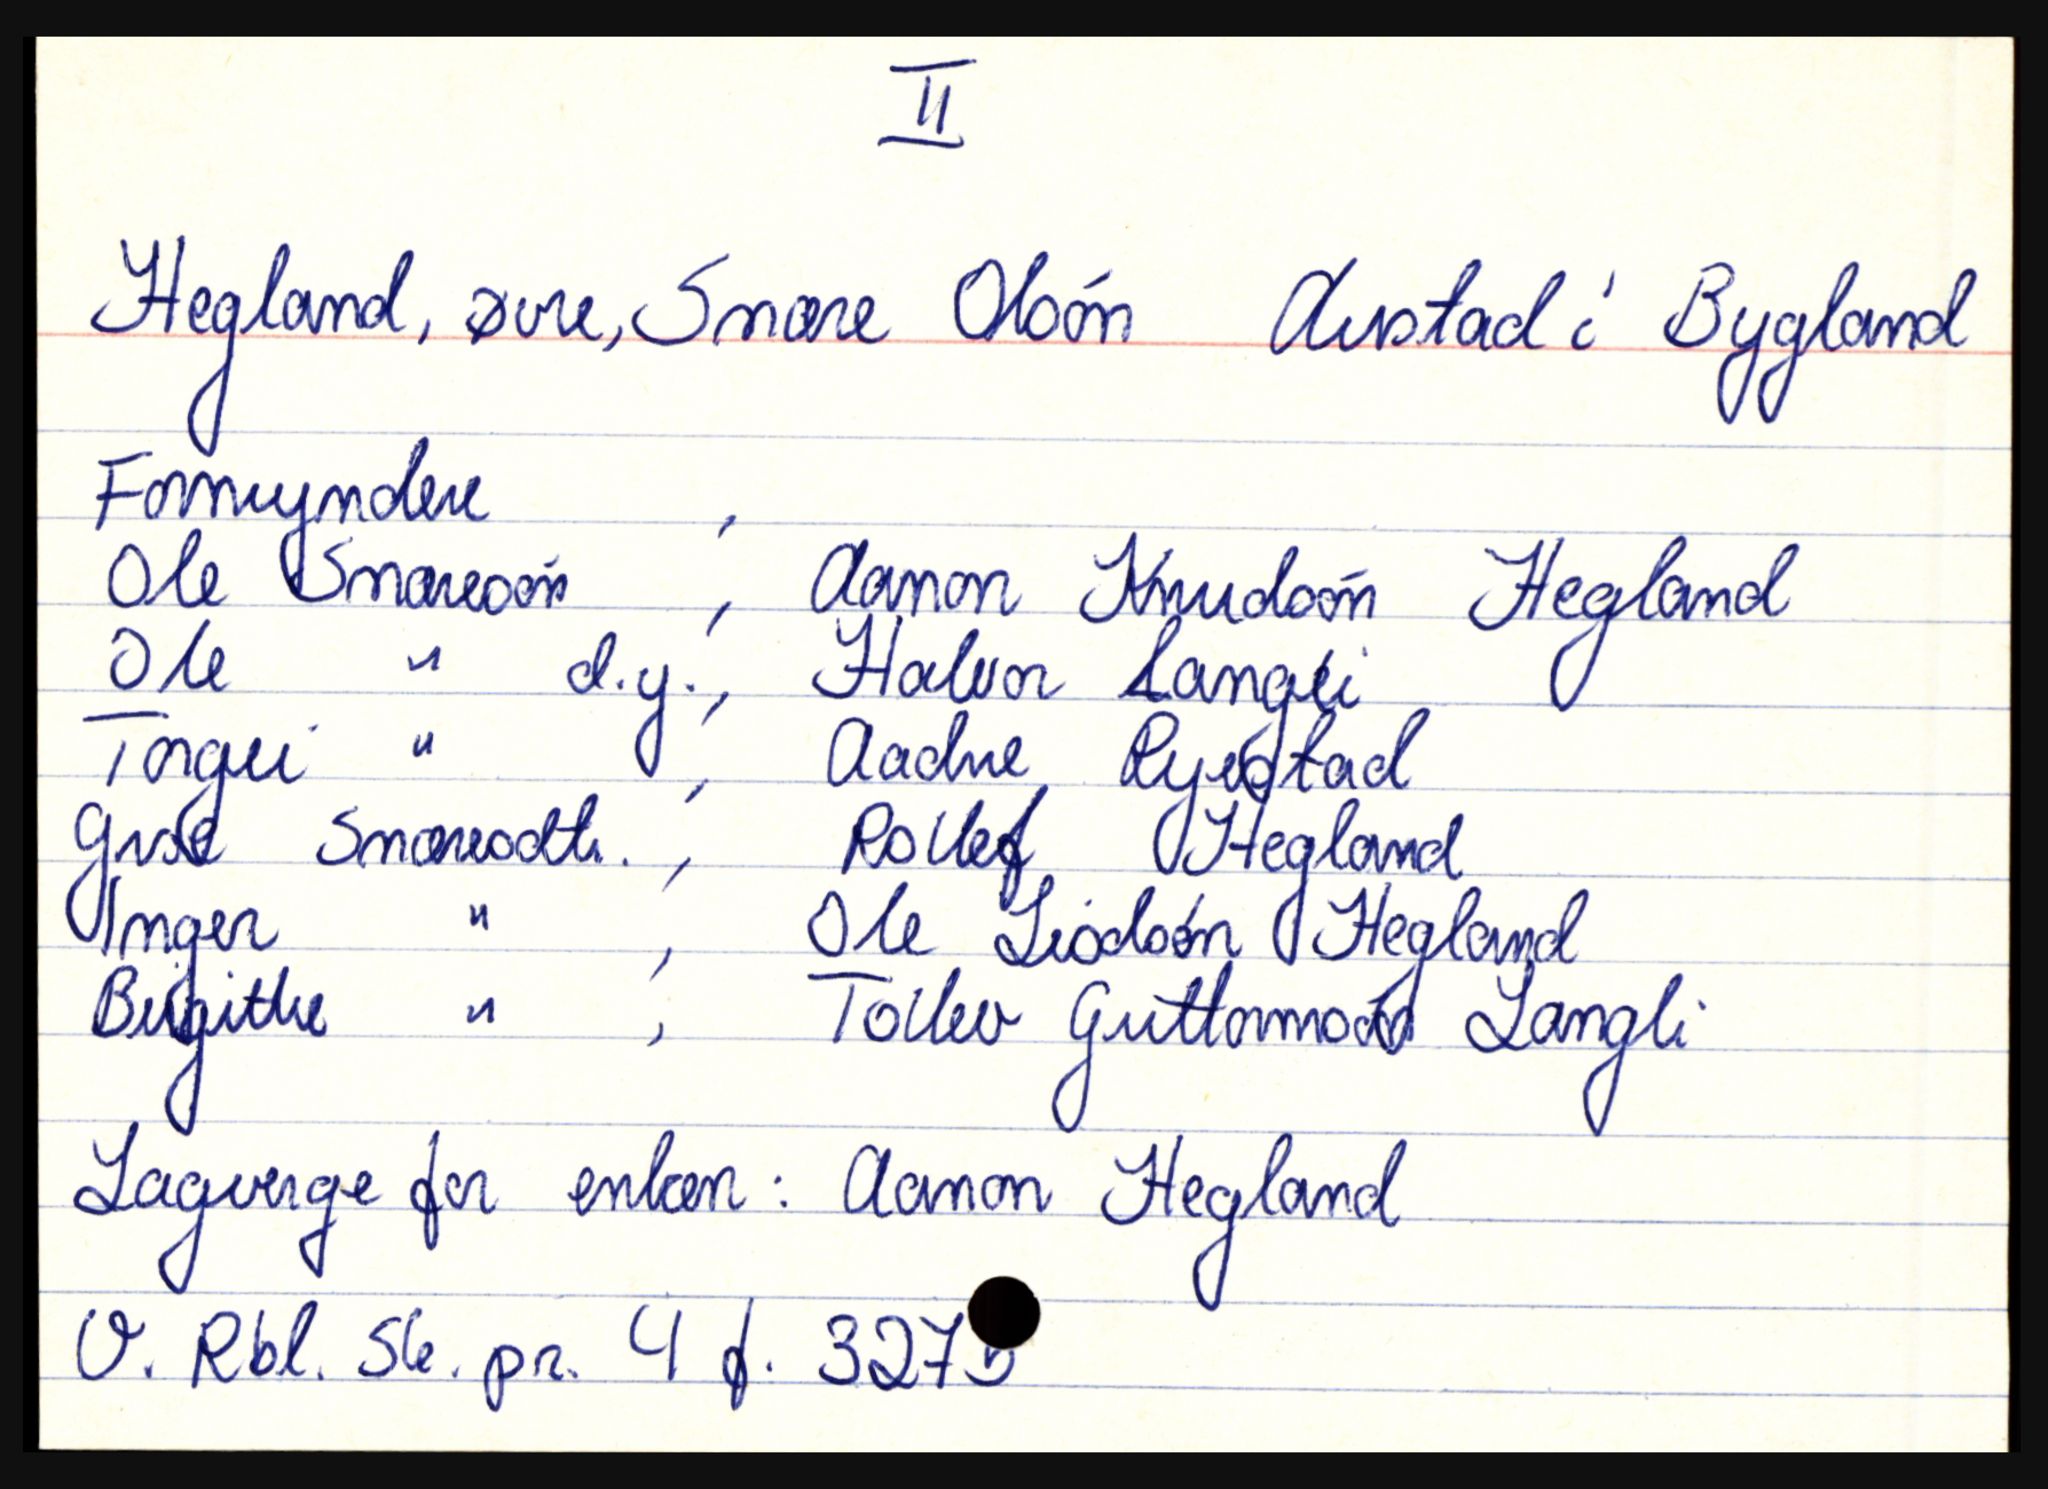 II
Hegland, øvre, Snare Olsón Austad i Bygland
Formyndere ,
Ole Snaresón , Aanon Knudsón Hegland
Ole " d.y. , Halvor Langei
Torgei " , Aadne Rysstad
Snaresdtr. , Rollef Hegland
Inger " , Ole Hegland
Birgithe " , Tollev Guttormsøn Langli
Lagverge for enken : Aanon Hegland
V. Rbl. Sk. pr. 4 f. 327